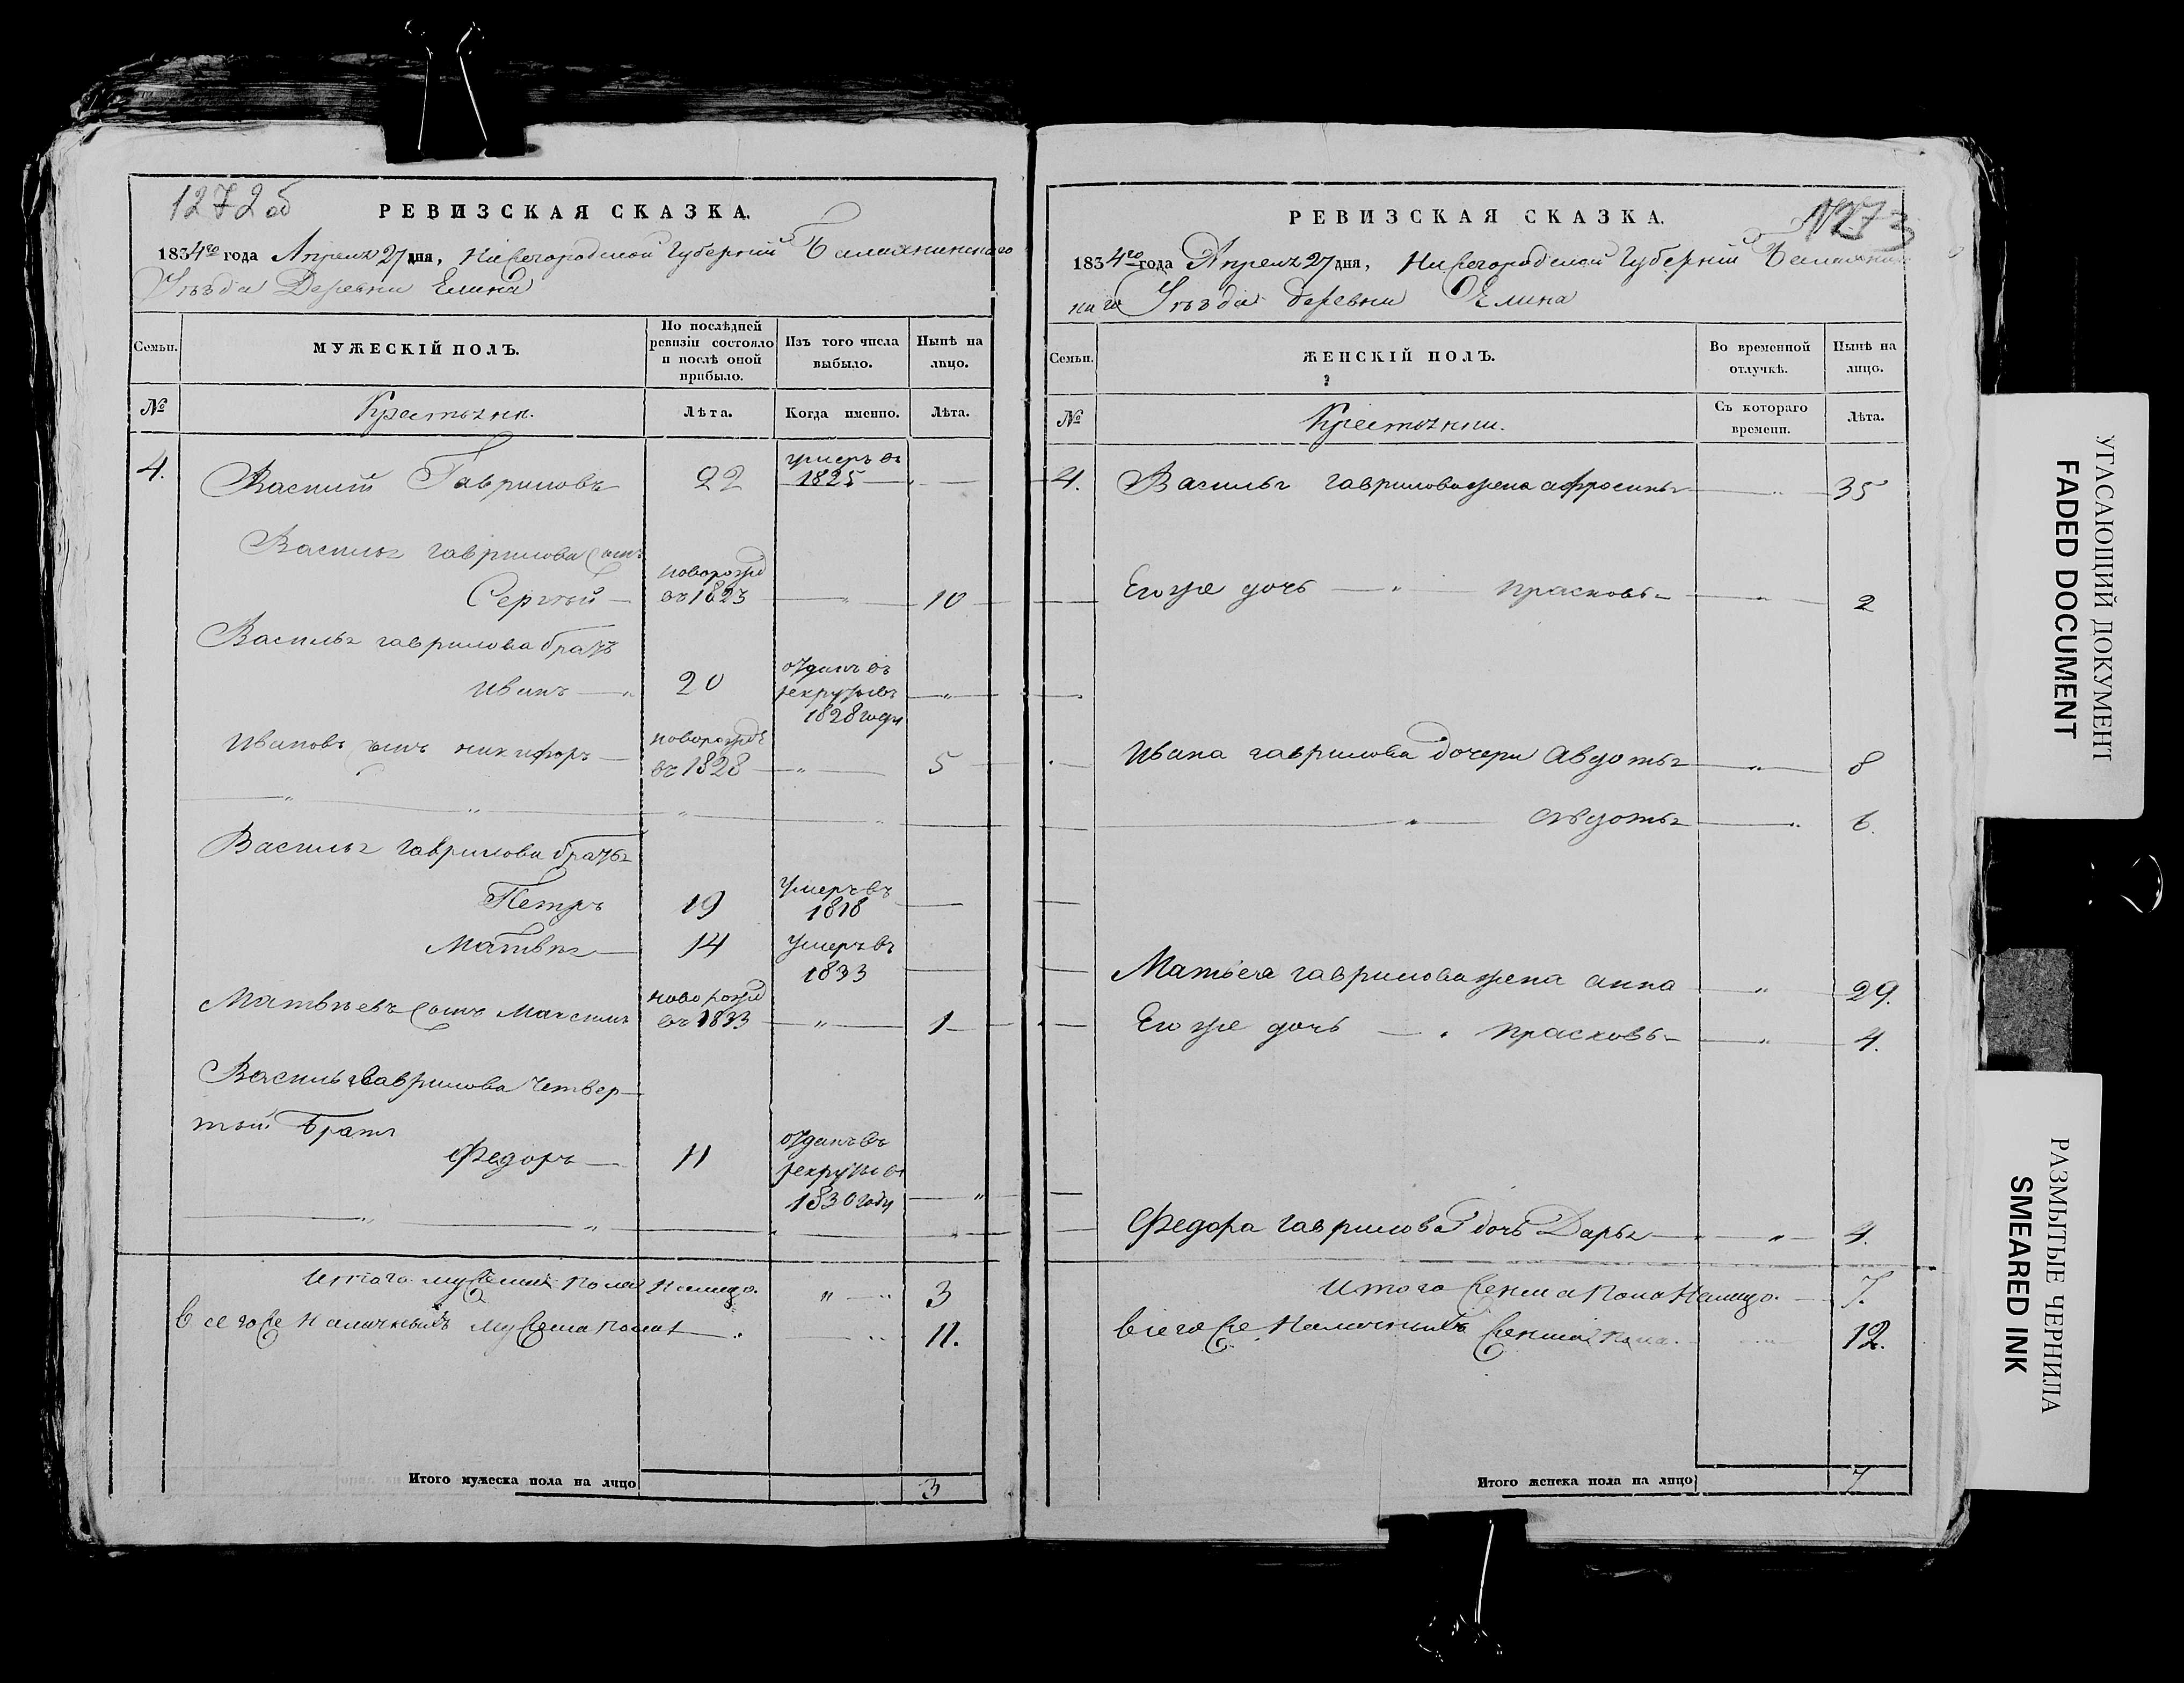 1272 об
РЕВИЗСКАЯ СКАЗКА.
1834го года Апреля 27 дня, Нижегородской Губернiи Балахнинскаго
Уѣзда Деревни Елина
Семьи.
МУЖЕСКIЙ ПОЛЪ.
По послѣдней ревизiи состояло и послѣ оной прибыло.
Изъ того числа выбыло.
Нынѣ на лицо.
№
Крестьяня.
Лѣта.
Когда именно.
Лѣта.
4.
Василий Гавриловъ 22 умеръ въ 1825
Василья гаврилова сынъ
Сергѣй новорожд въ 1823 10
Василья гаврилова братъ
иванъ 20 отданъ въ рекруты въ 1828 году
Ивановъ сынъ никифоръ новорожд въ 1828 5
Василья гаврилова братья
Петръ 19 Умеръ въ 1818
Матвѣй 14 Умеръ въ 1833
Матвѣевъ сынъ Максимъ новорожд въ 1833 1
Василья Гаврилова четвер-
тый братъ
Федоръ 11 отданъ въ рекруты въ 1830 году
Итого мужеска пола налицо. 3
Всего же наличныхъ мужеска пола 11.
Итого мужеска пола на лицо 3
1273
РЕВИЗСКАЯ СКАЗКА.
1834го года Апреля 27 дня, Нижегородской Губернiи Балахнин
скаго Уѣзда деревни Елина
Семьи.
ЖЕНСКIЙ ПОЛЪ.
Во временной отлучкѣ.
Нынѣ на лицо.
№
Крестьянки.
Съ котораго времени.
Лѣта.
4. Василья гаврилова жена афросинья 35
Его же дочь прасковья 2
Ивана гаврилова дочери Авдотья 8
авдотья 6.
Матвея гаврилова жена анна 29.
Его же дочь прасковья 4.
Федора гаврилова дочь Дарья 4.
Итого женска пола налицо. 7.
Всего же наличныхъ женска пола. 12.
Итого женска пола на лицо 7
УГАСАЮЩИЙ ДОКУМЕНТ
FADED DOCUMENT
РАЗМЫТЫЕ ЧЕРНИЛА
SMEARED INK